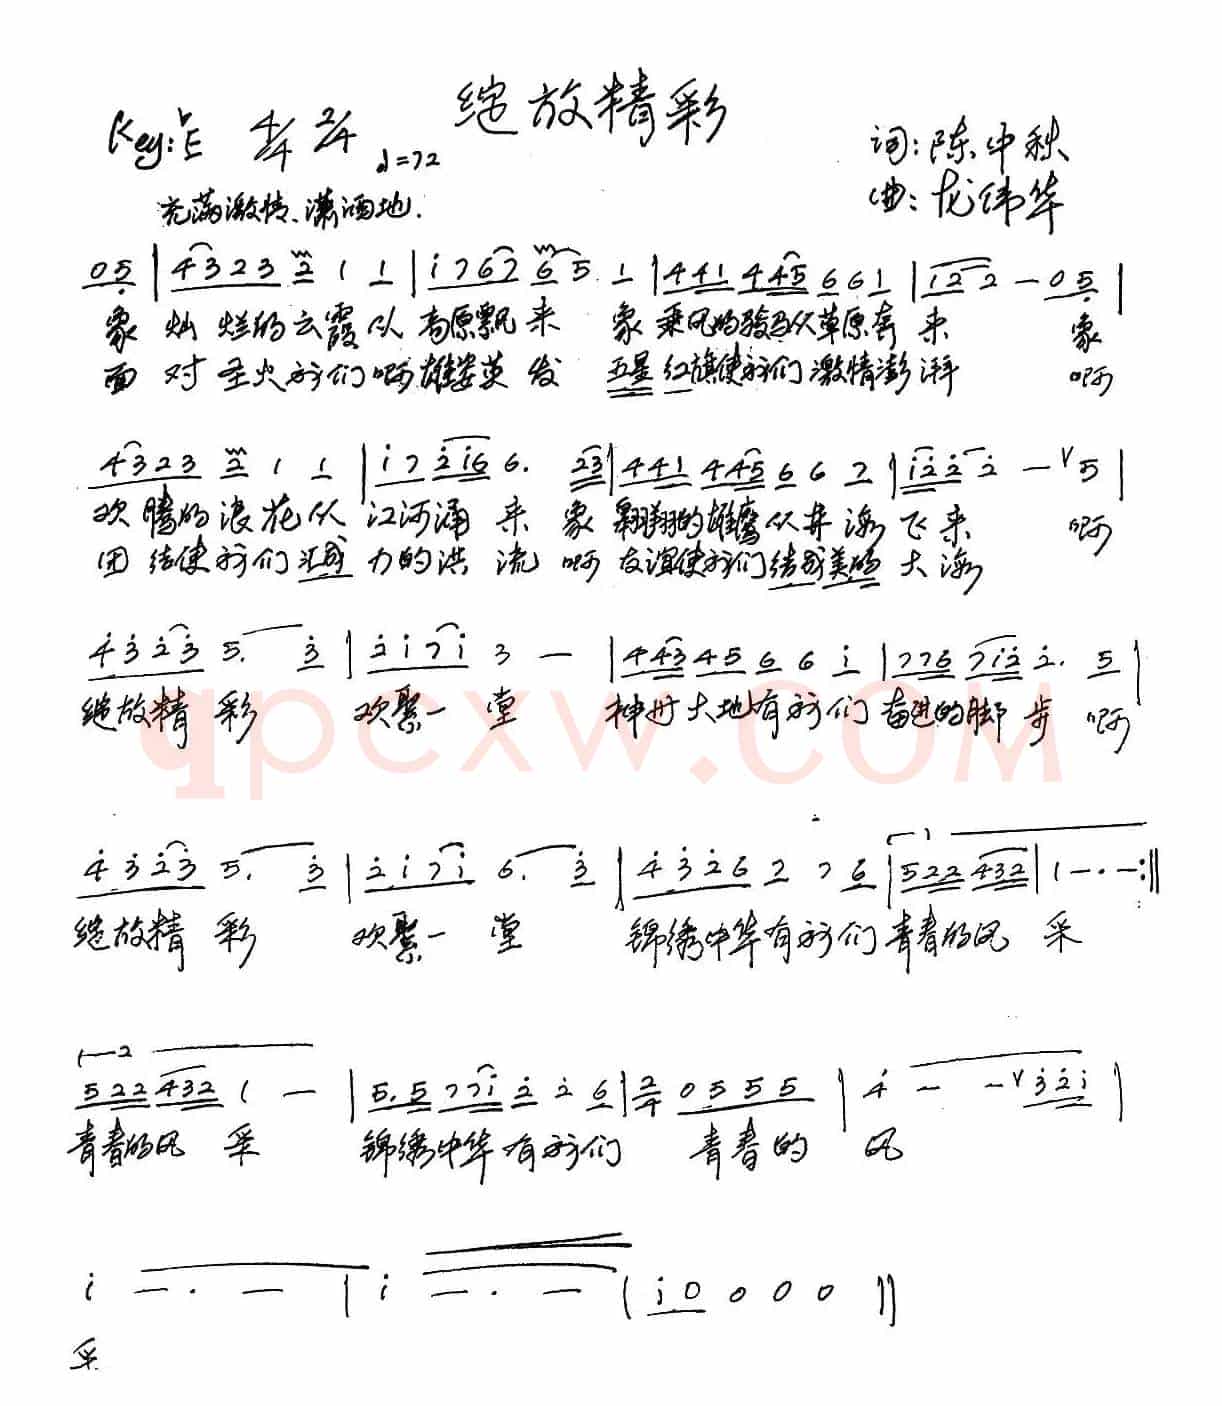 绽放精彩
Key: ♭E 4/4 2/4 ♩=72
词: 陈中秋
充满激情、潇洒地.
曲: 龙纬华
0 5 | 4 3 2 3 2 1 1 | i 7 6 7 6 5. 1 | 4 4 1 4 4 5 6 6 1 | i 2 2 - 0 5 |
象 灿 烂的云霞从 高原飘来 象 乘风的骏马从草原奔 来 象
面 对 圣火我们啊雄姿英 发 五星红旗使我们激情澎湃 啊
4 3 2 3 2 1 1 | i 7 2 i 6 6. 2 3 | 4 4 1 4 4 5 6 6 2 | i 2 2 2 - ∨ 5 |
欢 腾的浪花从 江河涌 来 象 翱翔的雄鹰从林海飞来 啊
团 结使我们汇成 力的洪 流 啊 友谊使我们结成美的大海
4 3 2 3 5. 3 | 2 i 7 i 3 - | 4 4 3 4 5 6 6 i | 7 7 6 7 i 2 2. 5 |
绽放精 彩 欢聚一 堂 神州大地有我们 奋进的脚 步 啊
qpcxw.COM
4 3 2 3 5. 3 | 2 i 7 i 6. 3 | 4 3 2 6 2 7 6 | 1 5 2 2 4 3 2 | 1 - . - :||
绽放精 彩 欢聚一 堂 锦绣中华有我们 青春的风 采
2 5 2 2 4 3 2 1 - | 5. 5 7 7 i 2 2 6 | 2/4 0 5 5 5 | 4 - - ∨ 3 2 i |
青春的风 采 锦绣中华有我们 青春的 风
i - . - | i - . - | i 0 0 0 0 ||
采